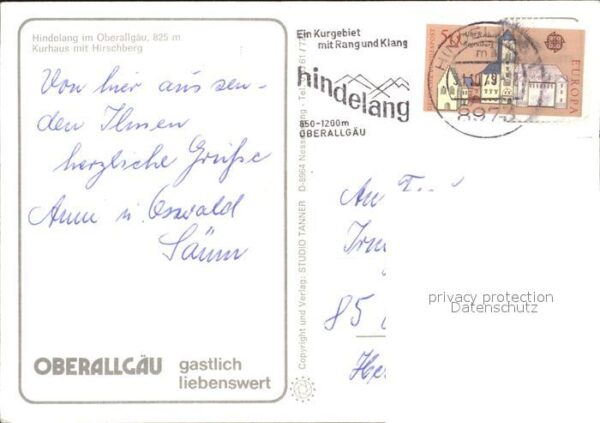 Hindelang im Oberallgäu, 825 m
Kurhaus mit Hirschberg
Von hier aus sen-
den Ihnen
herzliche Grüße
Anni u. Oswald
OBERALLGÄU gastlich
liebenswert
Copyright und Verlag: STUDIO TANNER D-8964 Nesselwang - Tel.
Ein Kurgebiet
mit Rang und Klang
hindelang
850-1200m
OBERALLGÄU
50
EUROPA
8973
An
85
privacy protection
Datenschutz